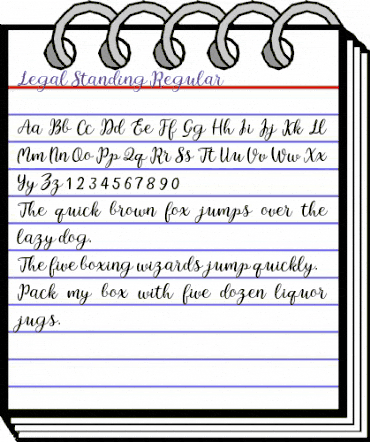 Legal Standing Regular
Aa Bb Cc Dd Ee Ff Gg Hh Ii Jj Kk Ll
Mm Nn Oo Pp Qq Rr Ss Tt Uu Vv Ww Xx
Yy Zz 1 2 3 4 5 6 7 8 9 0
The quick brown fox jumps over the
lazy dog.
The five boxing wizards jump quickly.
Pack my box with five dozen liquor
jugs.